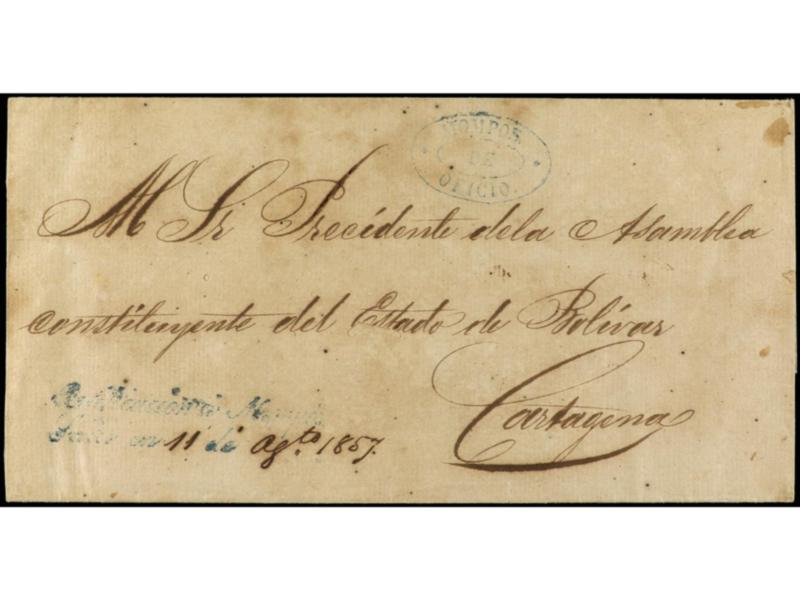 MOMPOS.
DE
OFICIO.
Al Sr Precidente dela Asamblea
constituyente del Estado de Bolívar
Cartagena
salio en 11 de Agto. 1857.